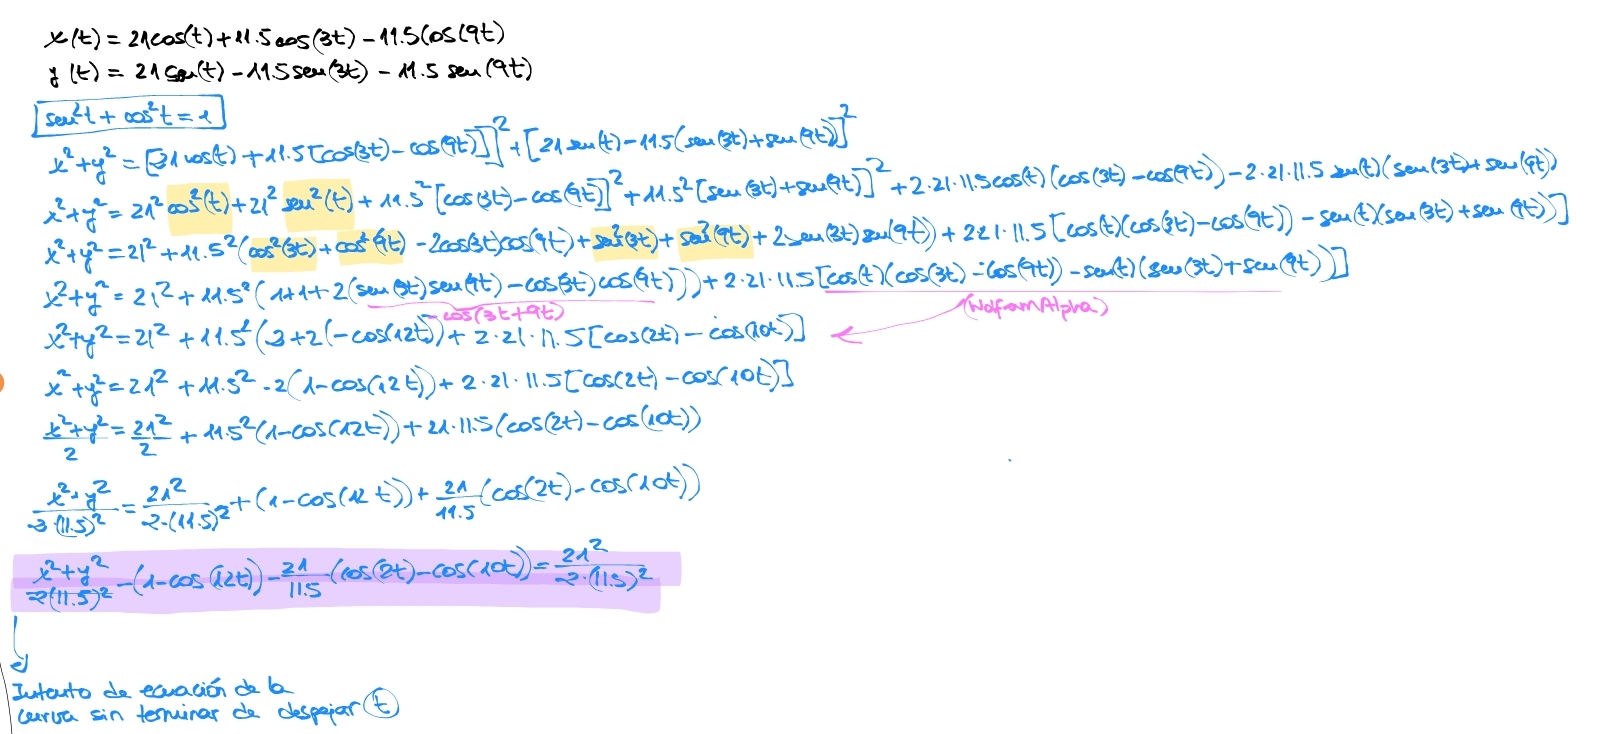 x(t) = 21cos(t) + 11.5cos(3t) - 11.5cos(9t)
y(t) = 21sen(t) - 11.5sen(3t) - 11.5 sen(9t)
sen²t + cos²t = 1
x²+y² = [21cos(t) + 11.5[cos(3t) - cos(9t)]]² + [21sen(t) - 11.5(sen(3t)+sen(9t))]²
x²+y² = 21² cos²(t) + 21² sen²(t) + 11.5² [cos(3t) - cos(9t)]² + 11.5² [sen(3t)+sen(9t)]² + 2·21·11.5cos(t)(cos(3t) - cos(9t)) - 2·21·11.5 sen(t)(sen(3t)+sen(9t))
x²+y² = 21² + 11.5² (cos²(3t) + cos²(9t) - 2cos(3t)cos(9t) + sen²(3t) + sen²(9t) + 2sen(3t)sen(9t)) + 2·21·11.5[cos(t)(cos(3t) - cos(9t)) - sen(t)(sen(3t)+sen(9t))]
x²+y² = 21² + 11.5² (1+1+2(sen(3t)sen(9t) - cos(3t)cos(9t))) + 2·21·11.5[cos(t)(cos(3t) - cos(9t)) - sen(t)(sen(3t)+sen(9t))]
-cos(3t+9t)
(WolframAlpha)
x²+y² = 21² + 11.5² (2+2(-cos(12t))) + 2·21·11.5[cos(2t) - cos(10t)]
x²+y² = 21² + 11.5² · 2(1-cos(12t)) + 2·21·11.5[cos(2t) - cos(10t)]
(x²+y²)/2 = 21²/2 + 11.5²(1-cos(12t)) + 21·11.5(cos(2t) - cos(10t))
(x²+y²)/(2(11.5)²) = 21²/(2·(11.5)²) + (1-cos(12t)) + 21/11.5 (cos(2t) - cos(10t))
(x²+y²)/(2(11.5)²) - (1-cos(12t)) - 21/11.5 (cos(2t) - cos(10t)) = 21²/(2·(11.5)²)
Intento de ecuación de la
curva sin terminar de despejar t